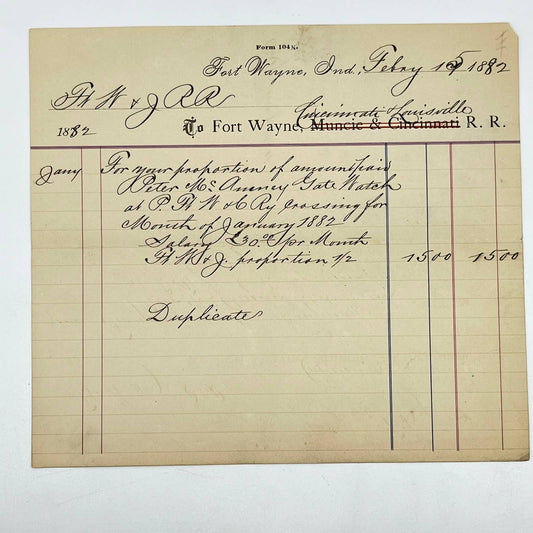 Form 104½
Fort Wayne, Ind., Febry 15 1882
Ft W & J RR
Cincinnati & Louisville
1882 To Fort Wayne, Muncie & Cincinnati R. R.
Jany For your proportion of amount paid
Peter Mc Aneney Gate Watch
at P. Ft W & C Ry Crossing for
Month of January 1882
Salary $30.00 pr Month
Ft W & J. proportion 1/2 1500 1500
Duplicate